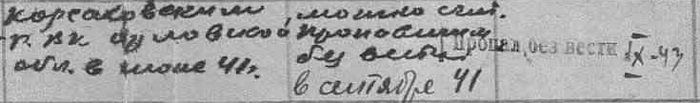 корсаковским
р. вк орловской
обл. в июне 41г.
можно счит.
пропавшим
без вести
в сентябре 41
Пропал без вести IX-43